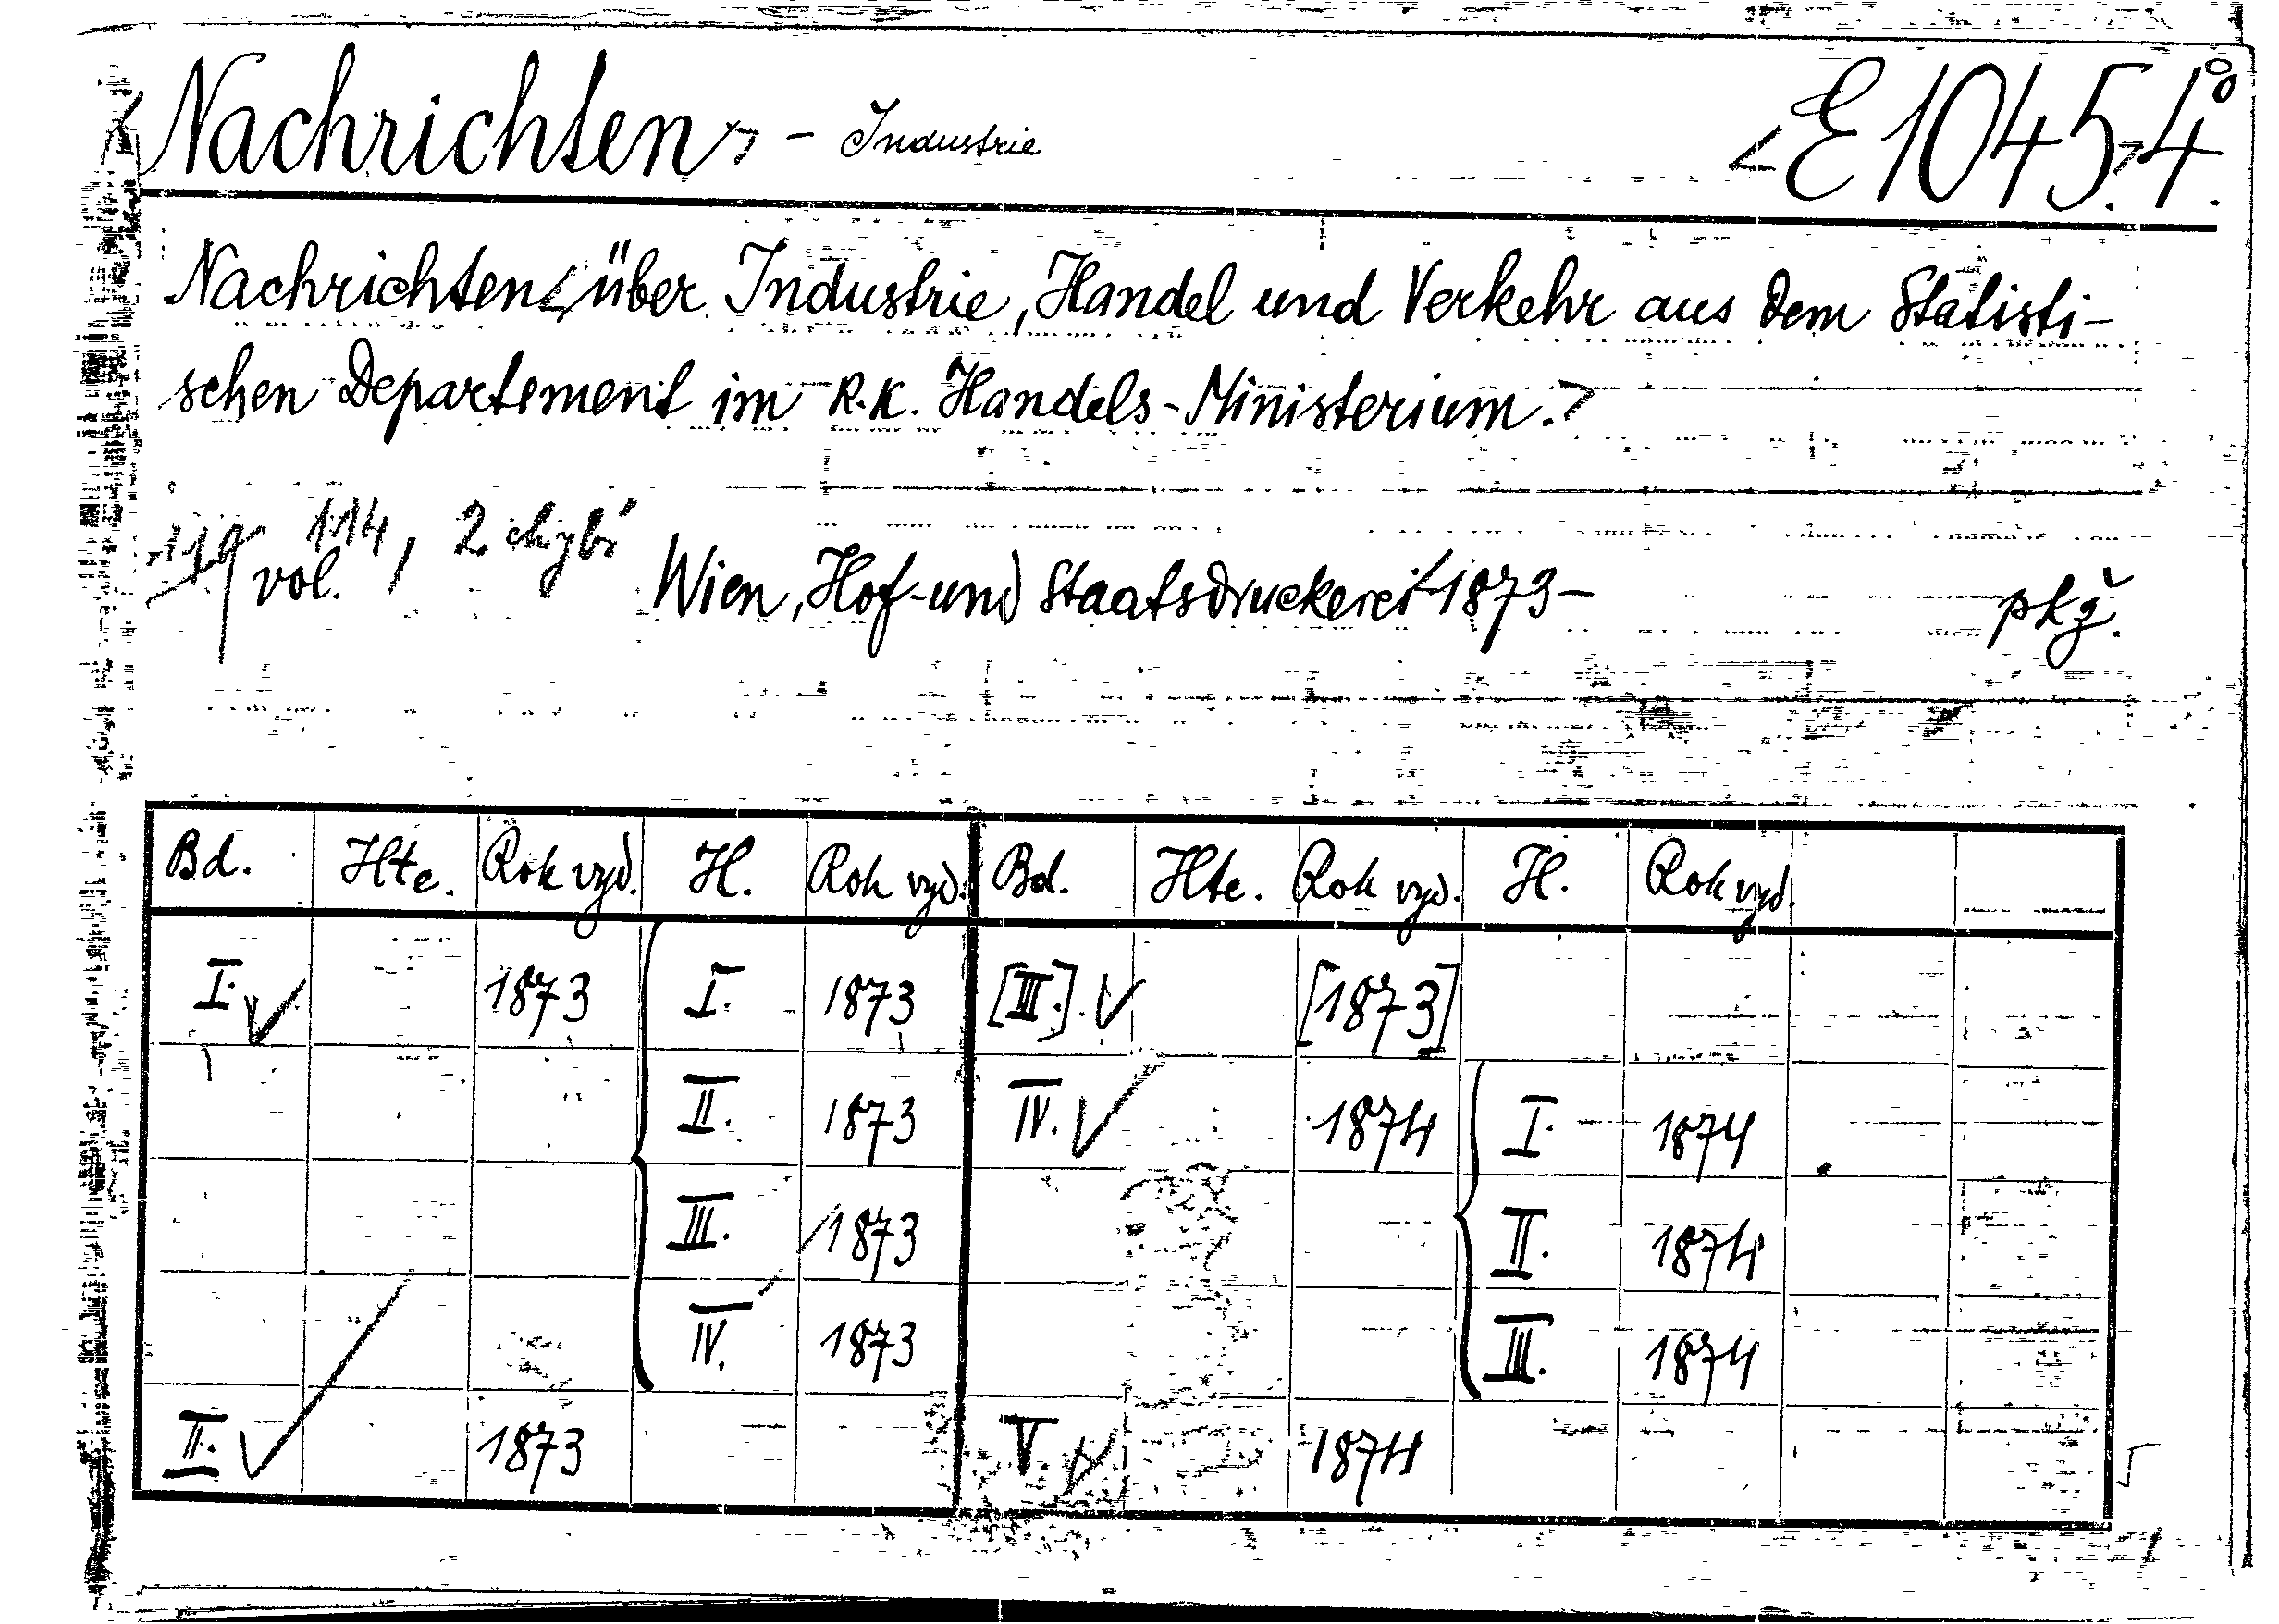 <Nachrichten> - Industrie <E 1045.> 4°.
Nachrichten <über Industrie, Handel und Verkehr aus dem Statisti-
schen Departement im K.K. Handels-Ministerium.>
114, 2 chybí
vol. Wien, Hof- und Staatsdruckerei 1873 – pkž.
Bd. Hte. Rok vyd. H. Rok vyd. Bd. Hte. Rok vyd. H. Rok vyd.
I. 1873 I. 1873 [III.]. [1873]
II. 1873 IV. 1874 I. 1874
III. 1873 II. 1874
IV. 1873 III. 1874
II. 1873 V 1874